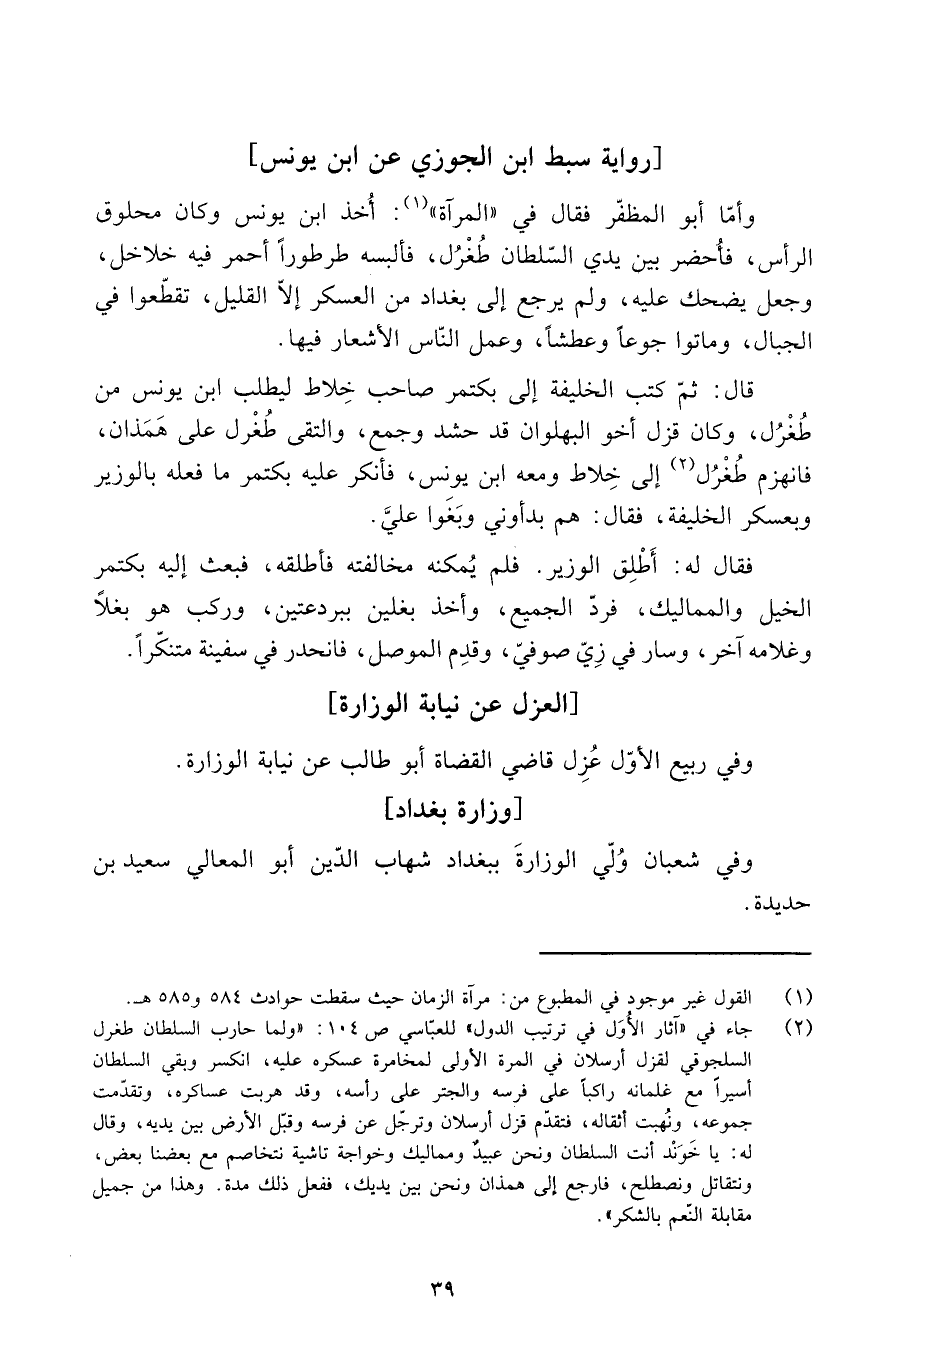 [رواية سبط ابن الجوزي عن ابن يونس]
وأمّا أبو المظفّر فقال في «المرآة»(١): أُخذ ابن يونس وكان محلوق
الرأس، فأُحضر بين يدي السّلطان طُغْرُل، فألبسه طرطوراً أحمر فيه خلاخل،
وجعل يضحك عليه، ولم يرجع إلى بغداد من العسكر إلاّ القليل، تقطّعوا في
الجبال، وماتوا جوعاً وعطشاً، وعمل النّاس الأشعار فيها.
قال: ثمّ كتب الخليفة إلى بكتمر صاحب خِلاط ليطلب ابن يونس من
طُغْرُل، وكان قزل أخو البهلوان قد حشد وجمع، والتقى طُغْرل على هَمَذان،
فانهزم طُغْرُل(٢) إلى خِلاط ومعه ابن يونس، فأنكر عليه بكتمر ما فعله بالوزير
وبعسكر الخليفة، فقال: هم بدأوني وبَغَوا عليَّ.
فقال له: أَطْلِق الوزير. فلم يُمكنه مخالفته فأطلقه، فبعث إليه بكتمر
الخيل والمماليك، فردّ الجميع، وأخذ بغلين ببردعتين، وركب هو بغلاً
وغلامه آخر، وسار في زِيّ صوفيّ، وقدِم الموصل، فانحدر في سفينة متنكّراً.
[العزل عن نيابة الوزارة]
وفي ربيع الأوّل عُزِل قاضي القضاة أبو طالب عن نيابة الوزارة.
[وزارة بغداد]
وفي شعبان وُلّي الوزارةَ ببغداد شهاب الدّين أبو المعالي سعيد بن
حديدة.
(١) القول غير موجود في المطبوع من: مرآة الزمان حيث سقطت حوادث ٥٨٤ و٥٨٥ هـ.
(٢) جاء في «آثار الأُوَل في ترتيب الدول» للعبّاسي ص ١٠٤: «ولما حارب السلطان طغرل
السلجوقي لقزل أرسلان في المرة الأولى لمخامرة عسكره عليه، انكسر وبقي السلطان
أسيراً مع غلمانه راكباً على فرسه والجتر على رأسه، وقد هربت عساكره، وتقدّمت
جموعه، ونُهبت أثقاله، فتقدّم قزل أرسلان وترجّل عن فرسه وقبّل الأرض بين يديه، وقال
له: يا خَوَنْد أنت السلطان ونحن عبيدٌ ومماليك وخواجة تاشية نتخاصم مع بعضنا بعض،
ونتقاتل ونصطلح، فارجع إلى همذان ونحن بين يديك، ففعل ذلك مدة. وهذا من جميل
مقابلة النّعم بالشكر».
٣٩